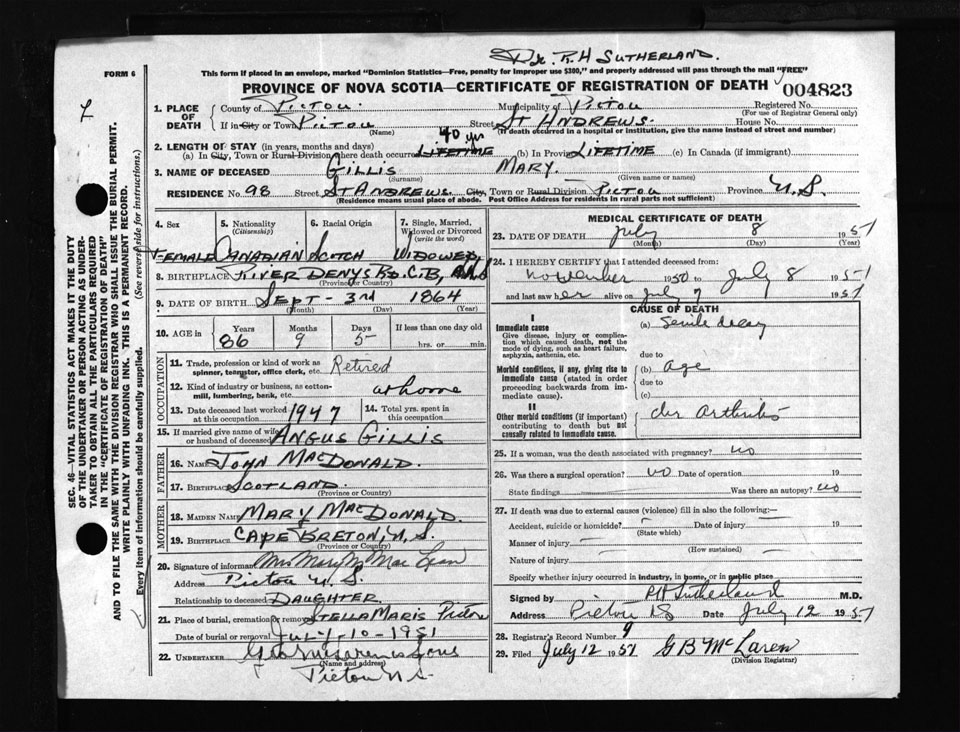 Dr. R. H. SUTHERLAND.
FORM 6
This form if placed in an envelope, marked "Dominion Statistics—Free, penalty for improper use $300," and properly addressed will pass through the mail "FREE"
PROVINCE OF NOVA SCOTIA—CERTIFICATE OF REGISTRATION OF DEATH
004823
SEC. 46—VITAL STATISTICS ACT MAKES IT THE DUTY OF THE UNDERTAKER OR PERSON ACTING AS UNDERTAKER TO OBTAIN ALL THE PARTICULARS REQUIRED IN THE "CERTIFICATE OF REGISTRATION OF DEATH" AND TO FILE THE SAME WITH THE DIVISION REGISTRAR WHO SHALL ISSUE THE BURIAL PERMIT.
WRITE PLAINLY WITH UNFADING INK. THIS IS A PERMANENT RECORD.
Every item of information should be carefully supplied. (See reverse side for instructions.)
1. PLACE OF DEATH County of PICTOU. Municipality of PICTOU Registered No.
(For use of Registrar General only)
If in City or Town PICTOU Street ST ANDREWS. House No.
(Name) (If death occurred in a hospital or institution, give the name instead of street and number)
2. LENGTH OF STAY (in years, months and days) 40 yrs
(a) In City, Town or Rural Division where death occurred LIFETIME (b) In Province LIFETIME (c) In Canada (if immigrant)
3. NAME OF DECEASED GILLIS MARY.
(Surname) (Given name or names)
RESIDENCE No. 98 Street ST ANDREWS. City, Town or Rural Division PICTOU Province N.S.
(Residence means usual place of abode. Post Office Address for residents in rural parts not sufficient)
4. Sex 5. Nationality (Citizenship) 6. Racial Origin 7. Single, Married, Widowed or Divorced (write the word)
FEMALE CANADIAN SCOTCH WIDOWED
8. BIRTHPLACE RIVER DENYS RD. C.B.
(Province or Country)
9. DATE OF BIRTH SEPT - 3rd 1864
(Month) (Day) (Year)
10. AGE in Years Months Days If less than one day old
86 9 5 hrs. or min.
OCCUPATION
11. Trade, profession or kind of work as spinner, teamster, office clerk, etc. Retired
12. Kind of industry or business, as cotton-mill, lumbering, bank, etc. at home
13. Date deceased last worked at this occupation 1947 14. Total yrs. spent in this occupation
15. If married give name of wife or husband of deceased ANGUS GILLIS
FATHER
16. NAME JOHN MACDONALD.
17. BIRTHPLACE SCOTLAND.
(Province or Country)
MOTHER
18. MAIDEN NAME MARY MACDONALD.
19. BIRTHPLACE CAPE BRETON, N.S.
(Province or Country)
20. Signature of informant Mrs Mary M. MacLean
Address Pictou N.S.
Relationship to deceased DAUGHTER
21. Place of burial, cremation or removal STELLA MARIS Pictou
Date of burial or removal JULY-10-1951
22. UNDERTAKER
(Name and address)
Pictou N.S.
MEDICAL CERTIFICATE OF DEATH
23. DATE OF DEATH July 8 1951
(Month) (Day) (Year)
24. I HEREBY CERTIFY that I attended deceased from:
November 1950 to July 8 1951
and last saw her alive on July 7 1951
CAUSE OF DEATH
I
Immediate cause
Give disease, injury or complication which caused death, not the mode of dying, such as heart failure, asphyxia, asthenia, etc.
(a) Senile decay
due to
Morbid conditions, if any, giving rise to immediate cause (stated in order proceeding backwards from immediate cause).
(b) age
due to
(c)
II
Other morbid conditions (if important) contributing to death but not causally related to immediate cause.
chr Arthritis
25. If a woman, was the death associated with pregnancy? no
26. Was there a surgical operation? no Date of operation 19
State findings Was there an autopsy? no
27. If death was due to external causes (violence) fill in also the following:—
Accident, suicide or homicide? Date of injury 19
(State which)
Manner of injury
(How sustained)
Nature of injury
Specify whether injury occurred in industry, in home, or in public place
Signed by RH Sutherland M.D.
Address Pictou NS Date July 12 1951
28. Registrar's Record Number 9
29. Filed July 12 1951 G B McLaren
(Division Registrar)